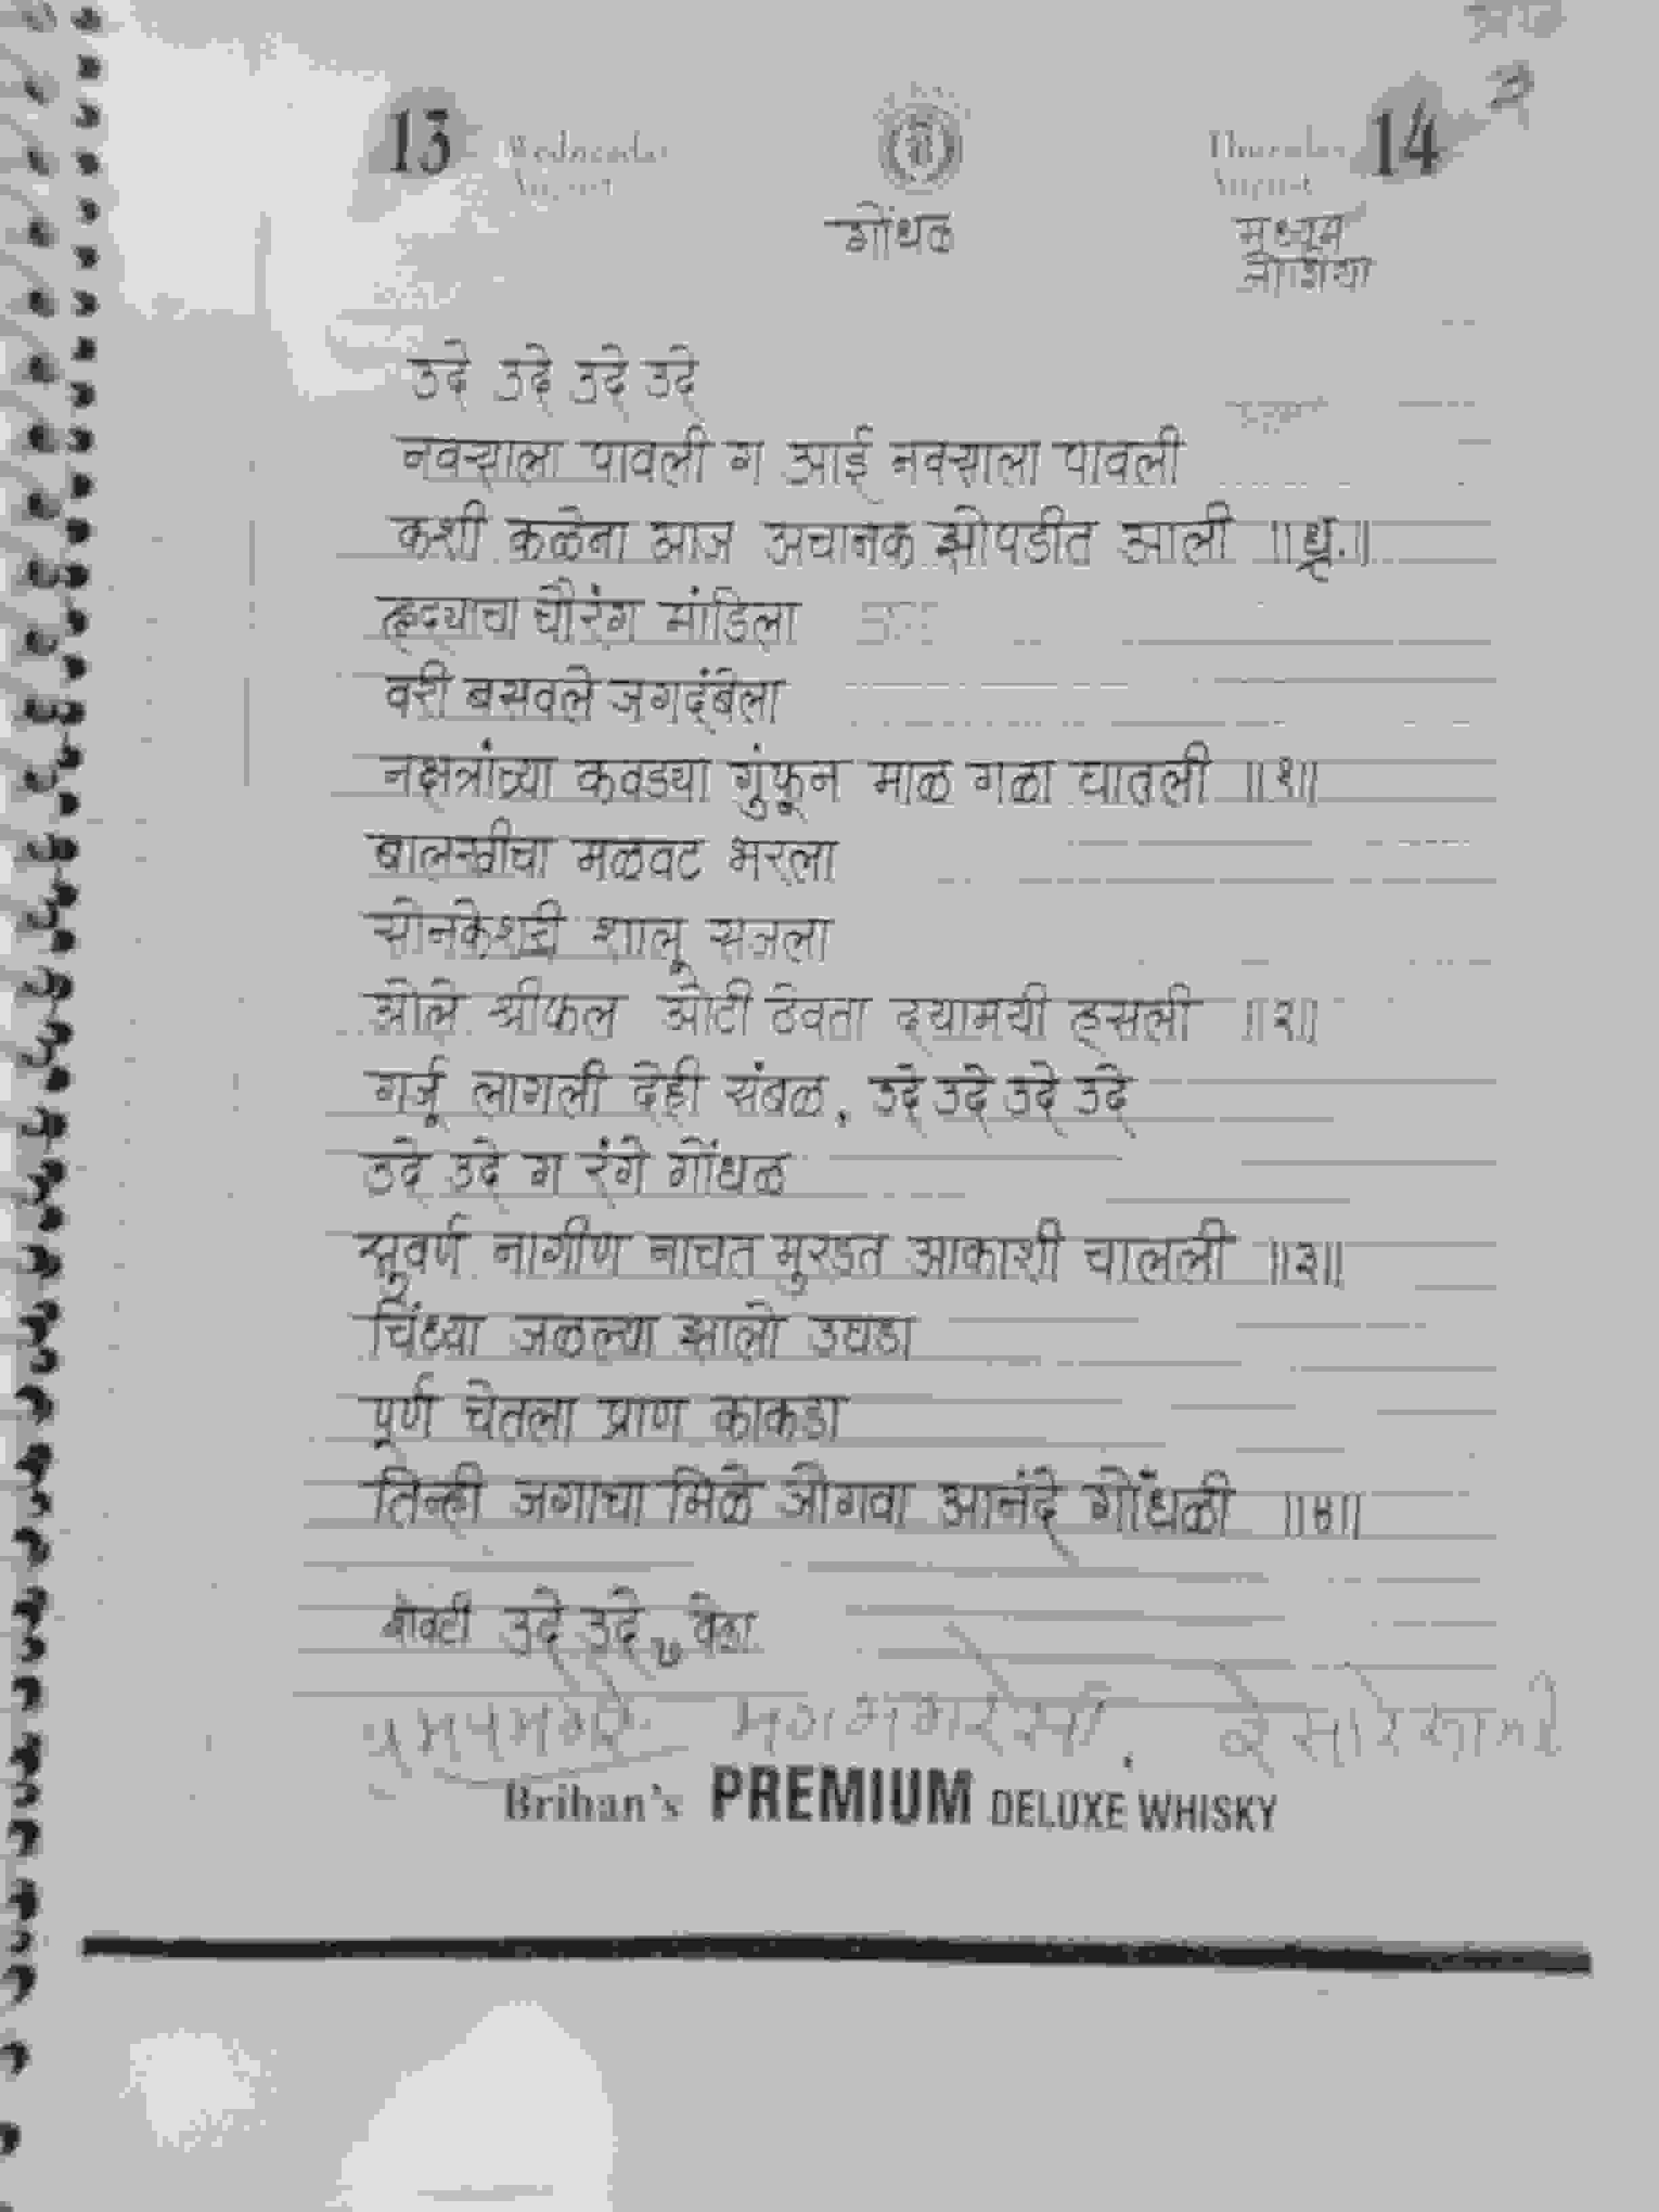 13 Wednesday August
Thursday August 14
गोंधळ
मध्यम
उदे उदे उदे उदे
नवऱ्याला पावली ग आई नवऱ्याला पावली
कशी कळेना आज अचानक झोपडीत आली ॥ध्रृ.॥
हृदयाचा चौरंग मांडिला
वरी बसवले जगदंबेला
नक्षत्रांच्या कवड्या गुंफून माळ गळा घातली ॥१॥
बालरवीचा मळवट भरला
सोनकेशरी शालू सजला
ओले श्रीफल ओटी ठेवता दयामयी हसली ॥२॥
गर्जू लागली देही संबळ, उदे उदे उदे उदे
उदे उदे ग रंगे गोंधळ
सुवर्ण नागीण नाचत मुरडत आकाशी चालली ॥३॥
चिंध्या जळल्या झालो उघडा
पूर्ण चेतला प्राण काकडा
तिन्ही जगाचा मिळे जोगवा आनंदे गोंधळी ॥४॥
शेवटी उदे उदे ७ वेळा
Brihan's PREMIUM DELUXE WHISKY